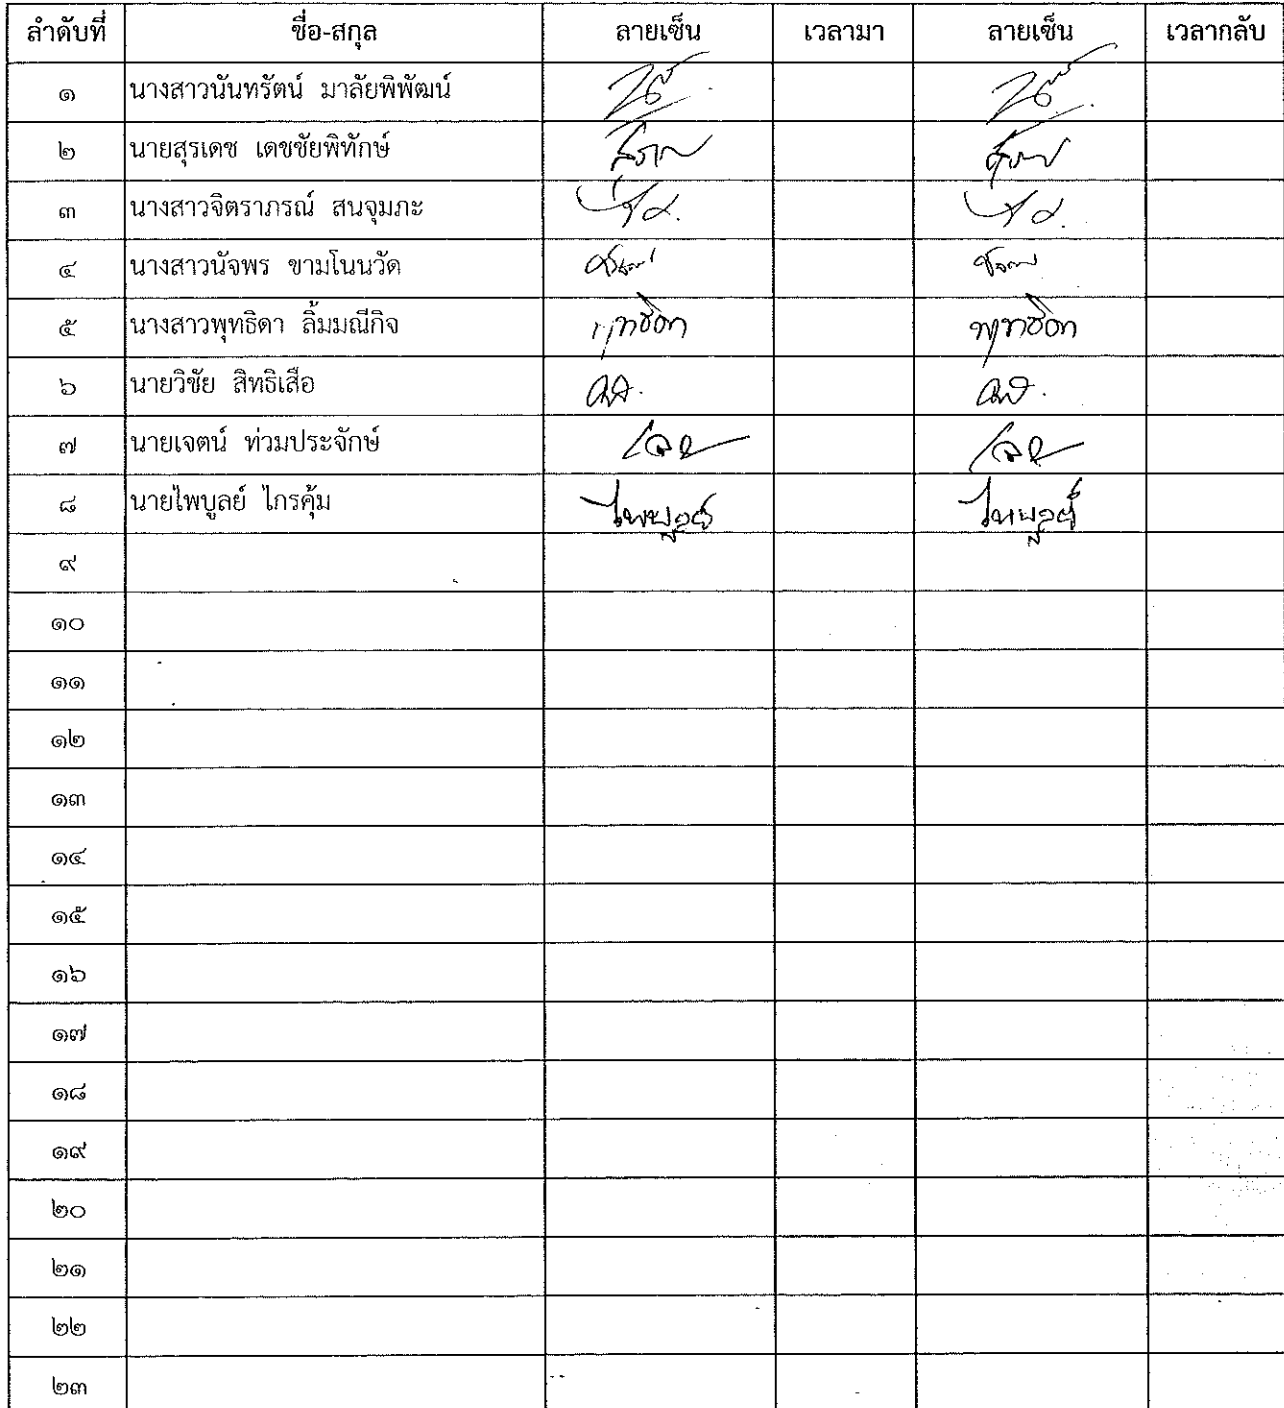 ลำดับที่ ชื่อ-สกุล ลายเซ็น เวลามา ลายเซ็น เวลากลับ
๑ นางสาวนันทรัตน์ มาลัยพิพัฒน์
๒ นายสุรเดช เดชชัยพิทักษ์
๓ นางสาวจิตราภรณ์ สนจุมภะ
๔ นางสาวนัจพร ขามโนนวัด
๕ นางสาวพุทธิดา ลิ้มมณีกิจ พุทธิดา
๖ นายวิชัย สิทธิเสือ
๗ นายเจตน์ ท่วมประจักษ์
๘ นายไพบูลย์ ไกรคุ้ม ไพบูลย์ ไพบูลย์
๙
๑๐
๑๑
๑๒
๑๓
๑๔
๑๕
๑๖
๑๗
๑๘
๑๙
๒๐
๒๑
๒๒
๒๓